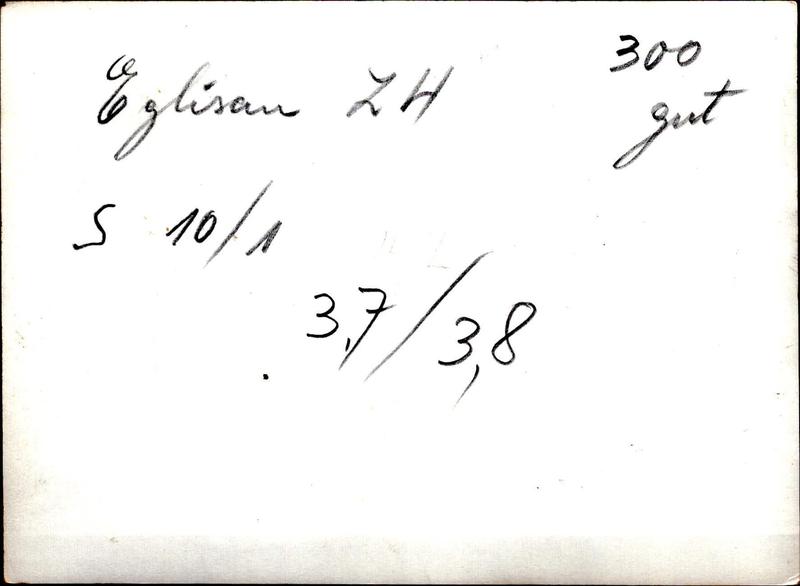 Eglisau ZH
300
gut
S 10/1
3,7/3,8